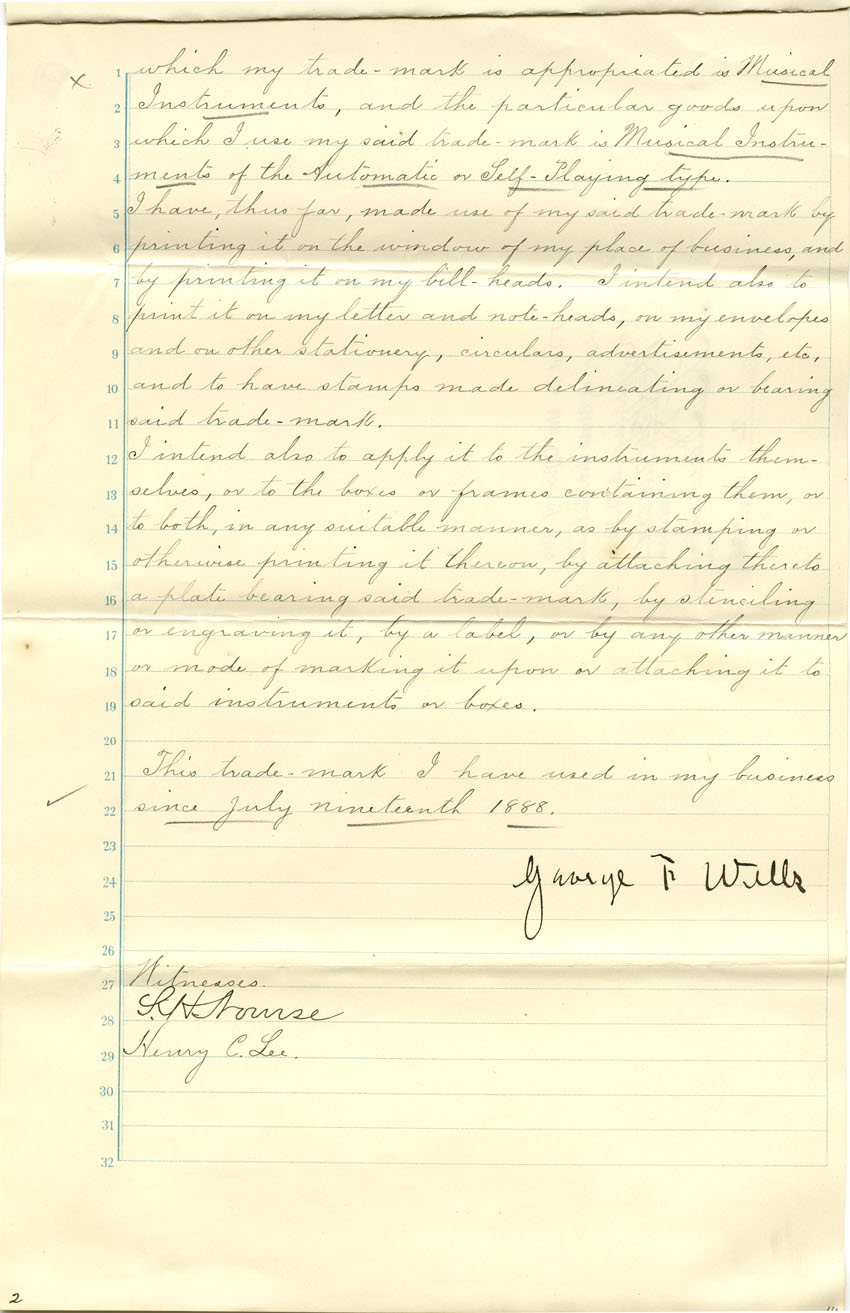 1 which my trade-mark is appropriated is Musical
2 Instruments, and the particular goods upon
3 which I use my said trade-mark is Musical Instru-
4 ments of the Automatic or Self-Playing type.
5 I have, thus far, made use of my said trade-mark by
6 printing it on the window of my place of business, and
7 by printing it on my bill-heads. I intend also to
8 print it on my letter and note-heads, on my envelopes
9 and on other stationery, circulars, advertisements, etc,
10 and to have stamps made delineating or bearing
11 said trade-mark.
12 I intend also to apply it to the instruments them-
13 selves, or to the boxes or frames containing them, or
14 to both, in any suitable manner, as by stamping or
15 otherwise printing it thereon, by attaching thereto
16 a plate bearing said trade-mark, by stenciling
17 or engraving it, by a label, or by any other manner
18 or mode of marking it upon or attaching it to
19 said instruments or boxes.
20
21 This trade-mark I have used in my business
22 since July nineteenth 1888.
23
24 George F Wells
25
26
27 Witnesses.
28 S. H. Nourse
29 Henry C. Lee.
30
31
32
2